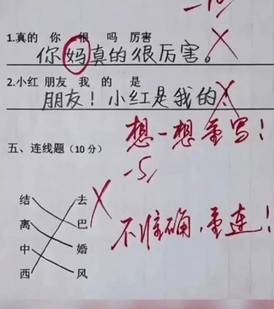 -10
1.真的 你 很 吗 厉害
你妈真的很厉害。
2.小红 朋友 我 的 是
朋友！小红是我的！
想一想重写！
-5
五、连线题（10分）
结 去
离 巴
中 婚
西 风
不准确，重连！